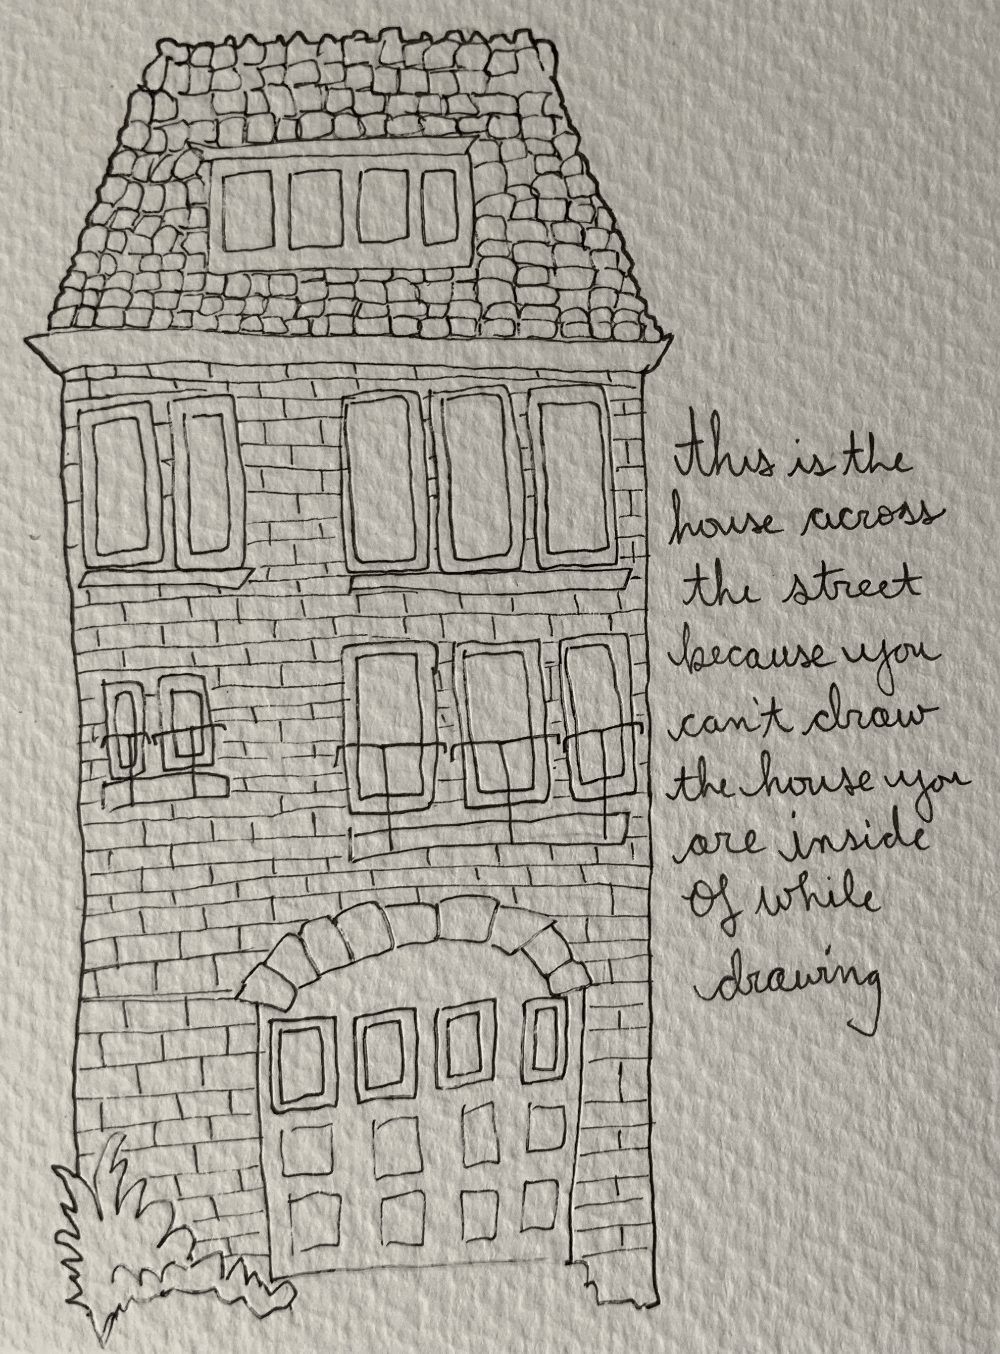 this is the
house across
the street
because you
can't draw
the house you
are inside
of while
drawing